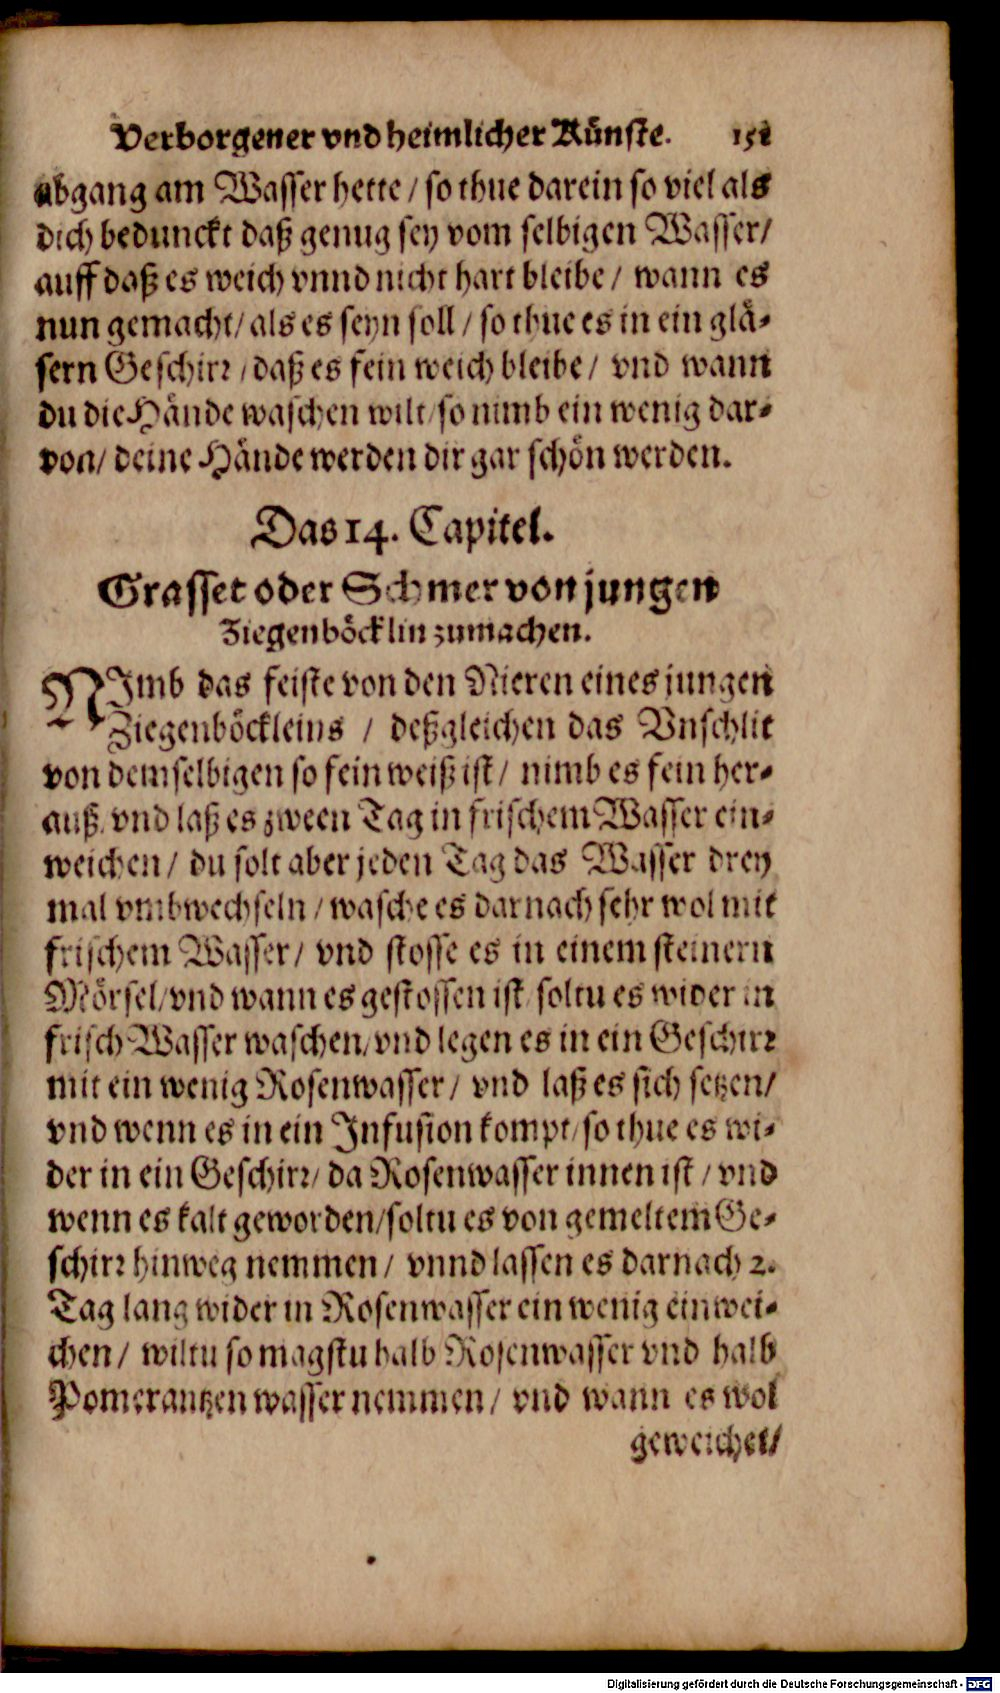 Verborgener vnd heimlicher Künste. 151
abgang am Wasser hette / so thue darein so viel als
dich bedunckt daß genug sey vom selbigen Wasser/
auff daß es weich vnnd nicht hart bleibe / wann es
nun gemacht/ als es seyn soll / so thue es in ein glä-
sern Geschirr / daß es fein weich bleibe / vnd wann
du die Hände waschen wilt/ so nimb ein wenig dar-
von/ deine Hände werden dir gar schön werden.
Das 14. Capitel.
Grasset oder Schmer von jungen
Ziegenböcklin zumachen.
NImb das feiste von den Nieren eines jungen
Ziegenböckleins / deßgleichen das Vnschlit
von demselbigen so fein weiß ist / nimb es fein her-
auß, vnd laß es zween Tag in frischem Wasser ein-
weichen / du solt aber jeden Tag das Wasser drey
mal vmbwechseln / wasche es darnach sehr wol mit
frischem Wasser / vnd stosse es in einem steinern
Mörsel/ vnd wann es gestossen ist/ soltu es wider in
frisch Wasser waschen/ vnd legen es in ein Geschirr
mit ein wenig Rosenwasser / vnd laß es sich setzen/
vnd wenn es in ein Infusion kompt/ so thue es wi-
der in ein Geschirr/ da Rosenwasser innen ist / vnd
wenn es kalt geworden/ soltu es von gemeltem Ge-
schirr hinweg nemmen / vnnd lassen es darnach 2.
Tag lang wider in Rosenwasser ein wenig einwei-
chen / wiltu so magstu halb Rosenwasser vnd halb
Pomerantzen wasser nemmen / vnd wann es wol
geweichet/
Digitalisierung gefördert durch die Deutsche Forschungsgemeinschaft - DFG